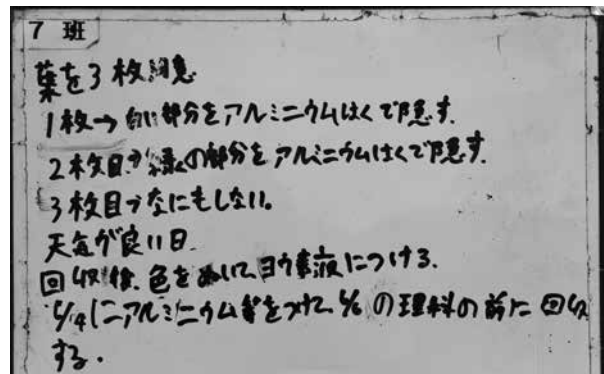 7 班
葉を3枚用意
1枚→白い部分をアルミニウムはくで隠す.
2枚目→緑の部分をアルミニウムはくで隠す.
3枚目→なにもしない。
天気が良い日
回収後、色をぬいて、ヨウ素液につける.
6/4にアルミニウム箔をつけて、6/6の理科の前に回収
する.